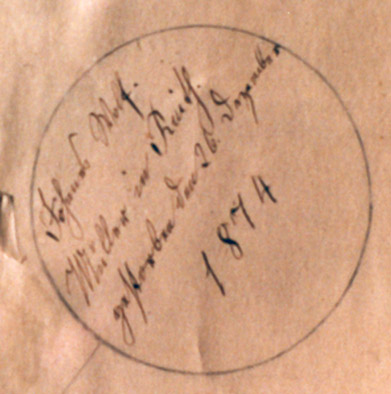 Johannes Wolf.
Müller in Reuth.
gestorben den 26. Dezember
1874